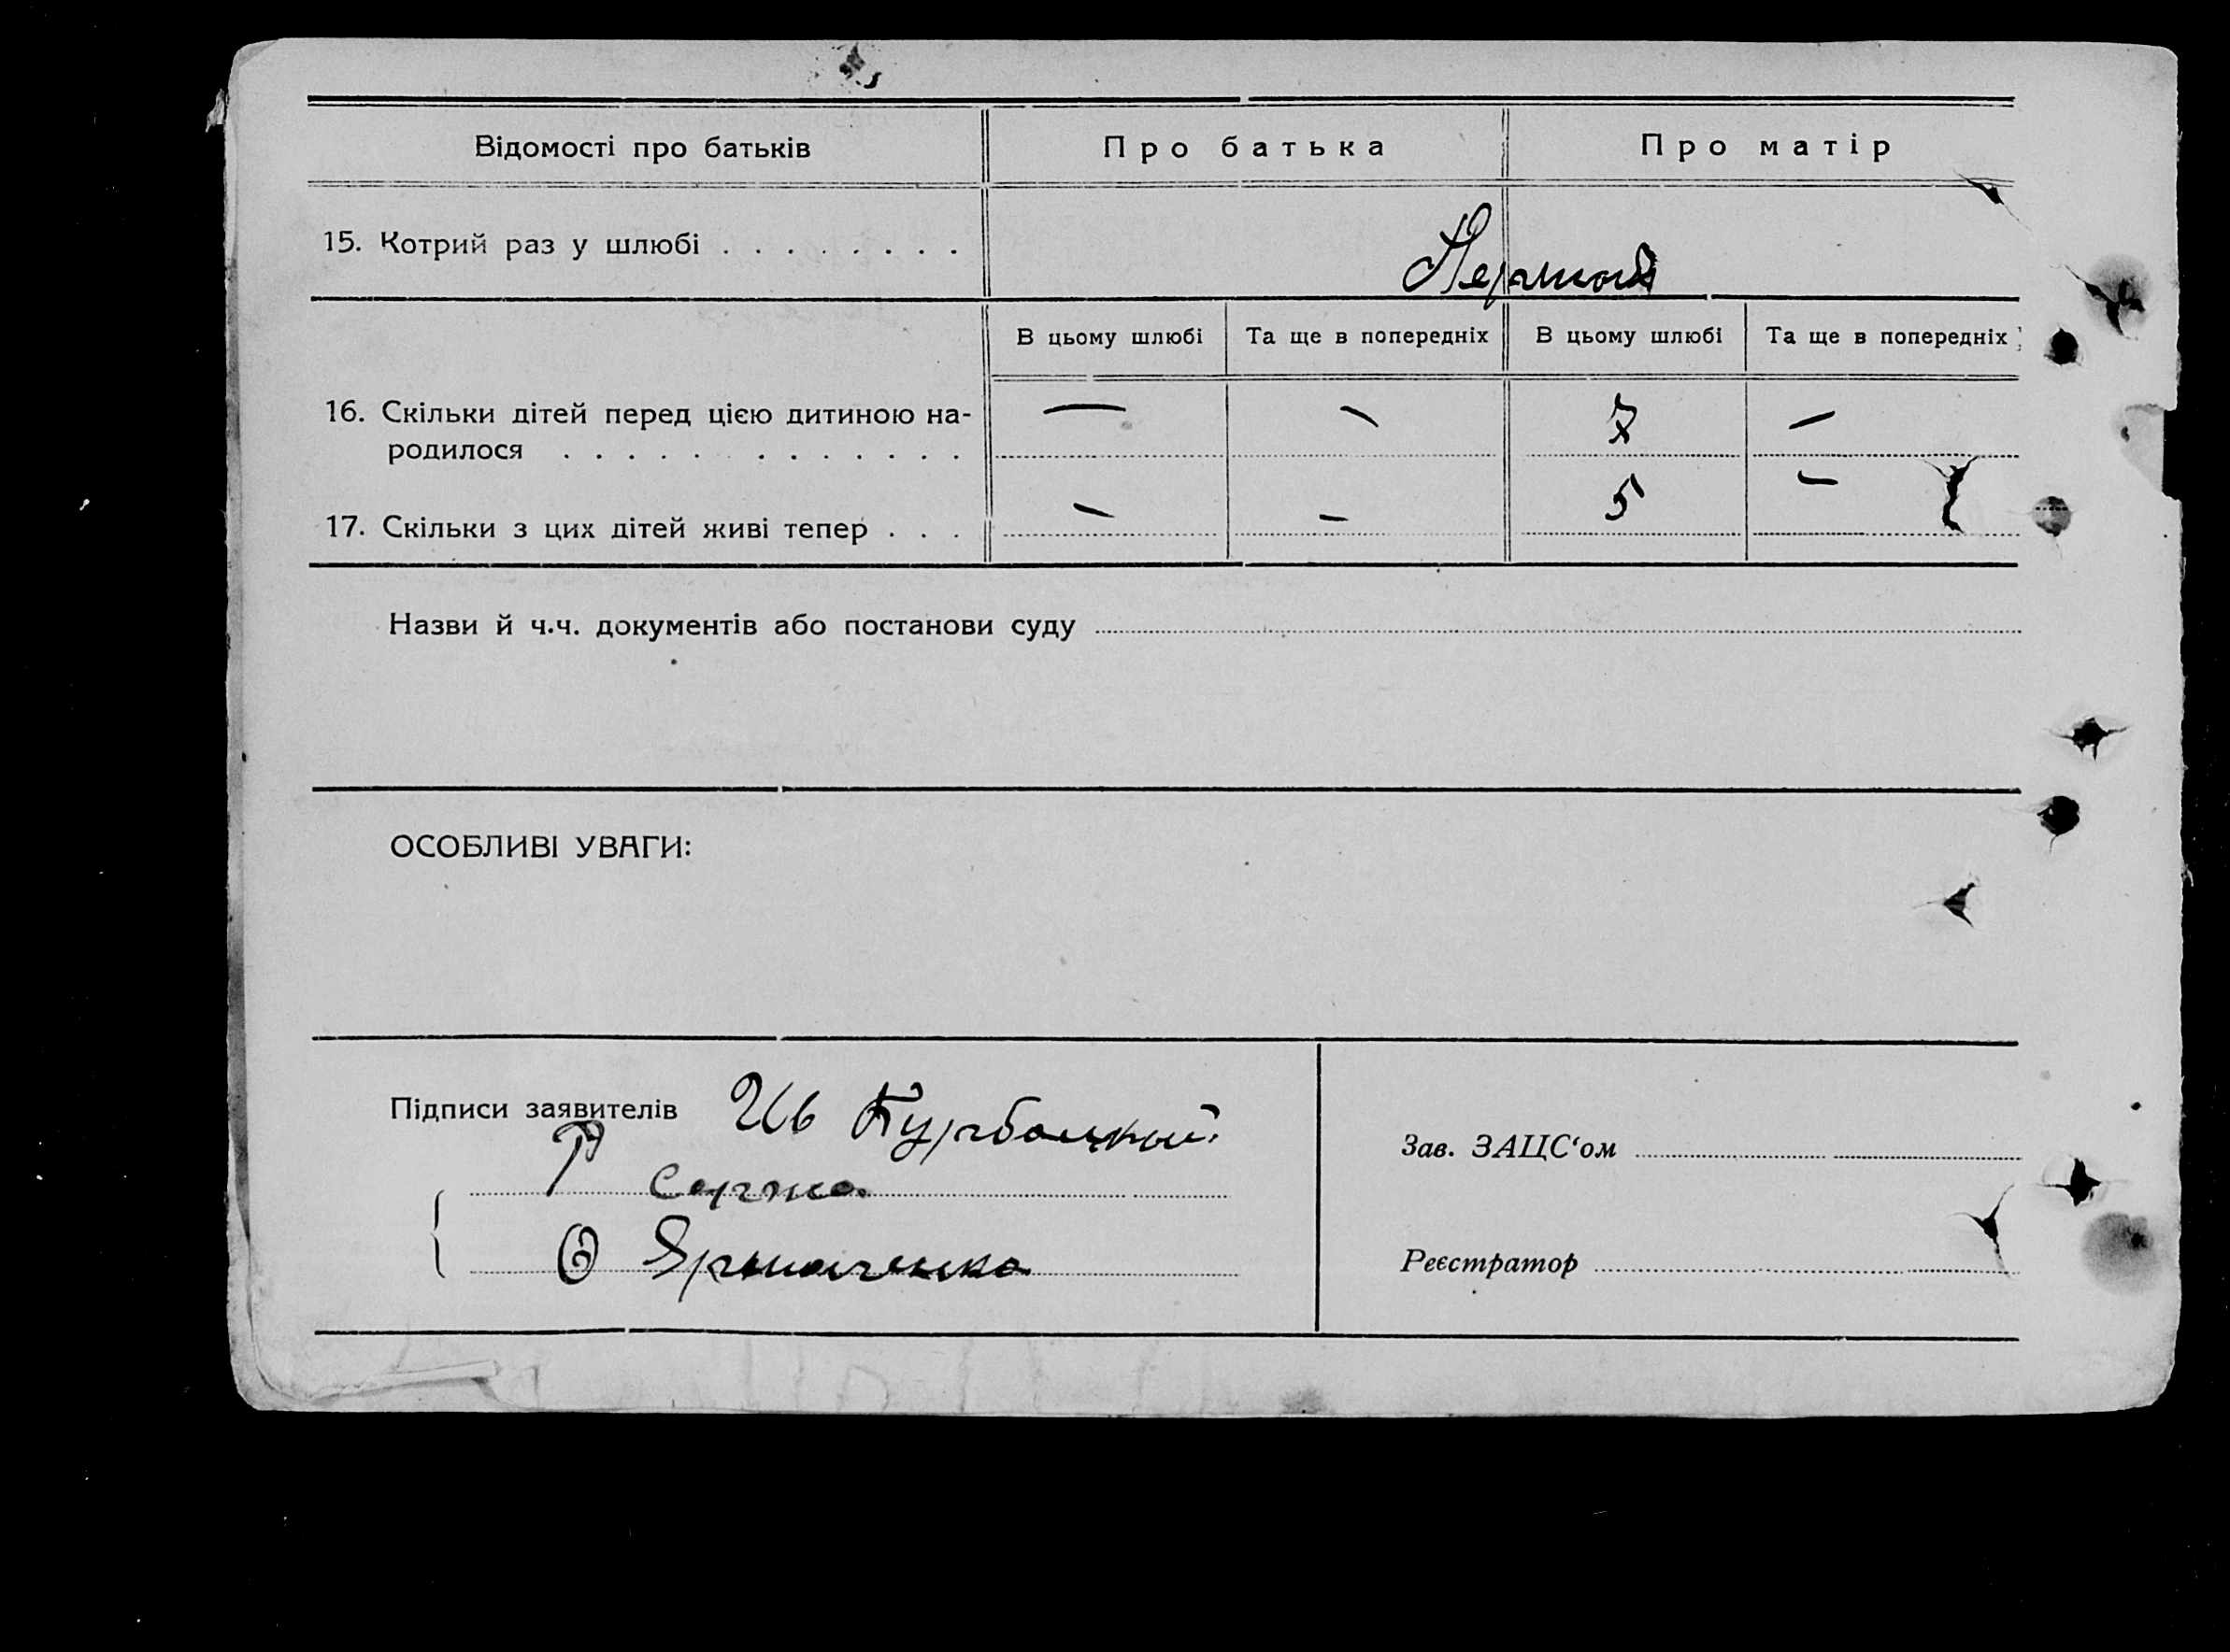 Відомості про батьків Про батька Про матір
15. Котрий раз у шлюбі . . . . . . . .
В цьому шлюбі Та ще в попередніх В цьому шлюбі Та ще в попередніх
16. Скільки дітей перед цією дитиною на-
родилося . . . . . . . . . . . . . — — 7 —
17. Скільки з цих дітей живі тепер . . . — — 5 —
Назви й ч.ч. документів або постанови суду
ОСОБЛИВІ УВАГИ:
Підписи заявителів
Зав. ЗАЦС‘ом
Реєстратор